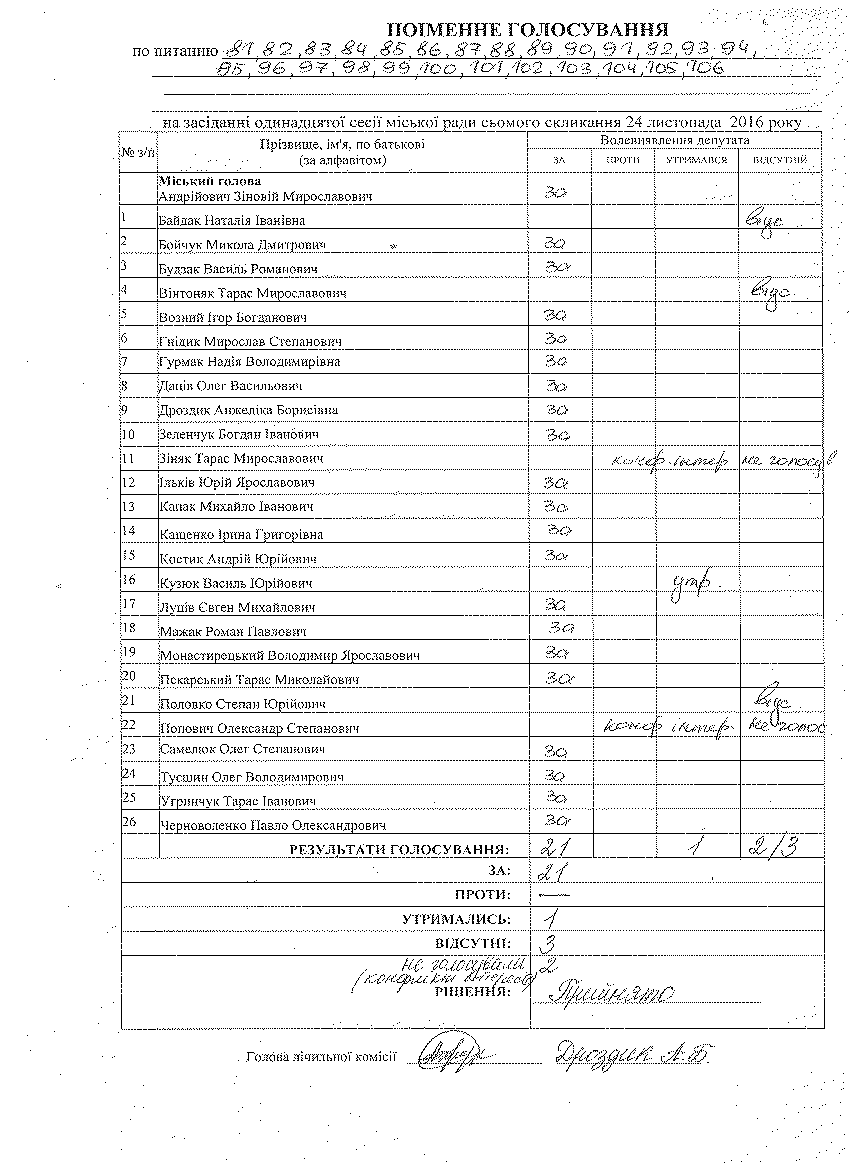 ПОІМЕННЕ ГОЛОСУВАННЯ
по питанню 81, 82, 83, 84, 85, 86, 87, 88, 89, 90, 91, 92, 93, 94,
95, 96, 97, 98, 99, 100, 101, 102, 103, 104, 105, 106
на засіданні одинадцятої сесії міської ради сьомого скликання 24 листопада 2016 року
№ з/п Прізвище, ім'я, по батькові (за алфавітом) Волевиявлення депутата
ЗА ПРОТИ УТРИМАВСЯ ВІДСУТНІЙ
Міський голова
Андрійович Зіновій Мирославович за
1 Байдак Наталія Іванівна відс
2 Бойчук Микола Дмитрович за
3 Будзак Василь Романович за
4 Вінтоняк Тарас Мирославович відс.
5 Возний Ігор Богданович за
6 Гнідик Мирослав Степанович за
7 Гурмак Надія Володимирівна за
8 Даців Олег Васильович за
9 Дроздик Анжеліка Борисівна за
10 Зеленчук Богдан Іванович за
11 Зіняк Тарас Мирославович конфр. інтер не голосув
12 Ільків Юрій Ярославович за
13 Капак Михайло Іванович за
14 Кащенко Ірина Григорівна за
15 Костик Андрій Юрійович за
16 Кузюк Василь Юрійович утр.
17 Луців Євген Михайлович за
18 Мажак Роман Павлович за
19 Монастирецький Володимир Ярославович за
20 Пекарський Тарас Миколайович за
21 Половко Степан Юрійович відс.
22 Попович Олександр Степанович конф інтер. не голос
23 Самелюк Олег Степанович за
24 Тусшин Олег Володимирович за
25 Угринчук Тарас Іванович за
26 Черноволенко Павло Олександрович за
РЕЗУЛЬТАТИ ГОЛОСУВАННЯ: 21 1 2/3
ЗА: 21
ПРОТИ: —
УТРИМАЛИСЬ: 1
ВІДСУТНІ: 3
не голосували 2
(конфлікт інтересів)
РІШЕННЯ: Прийнято
Голова лічильної комісії Дроздик А.Б.